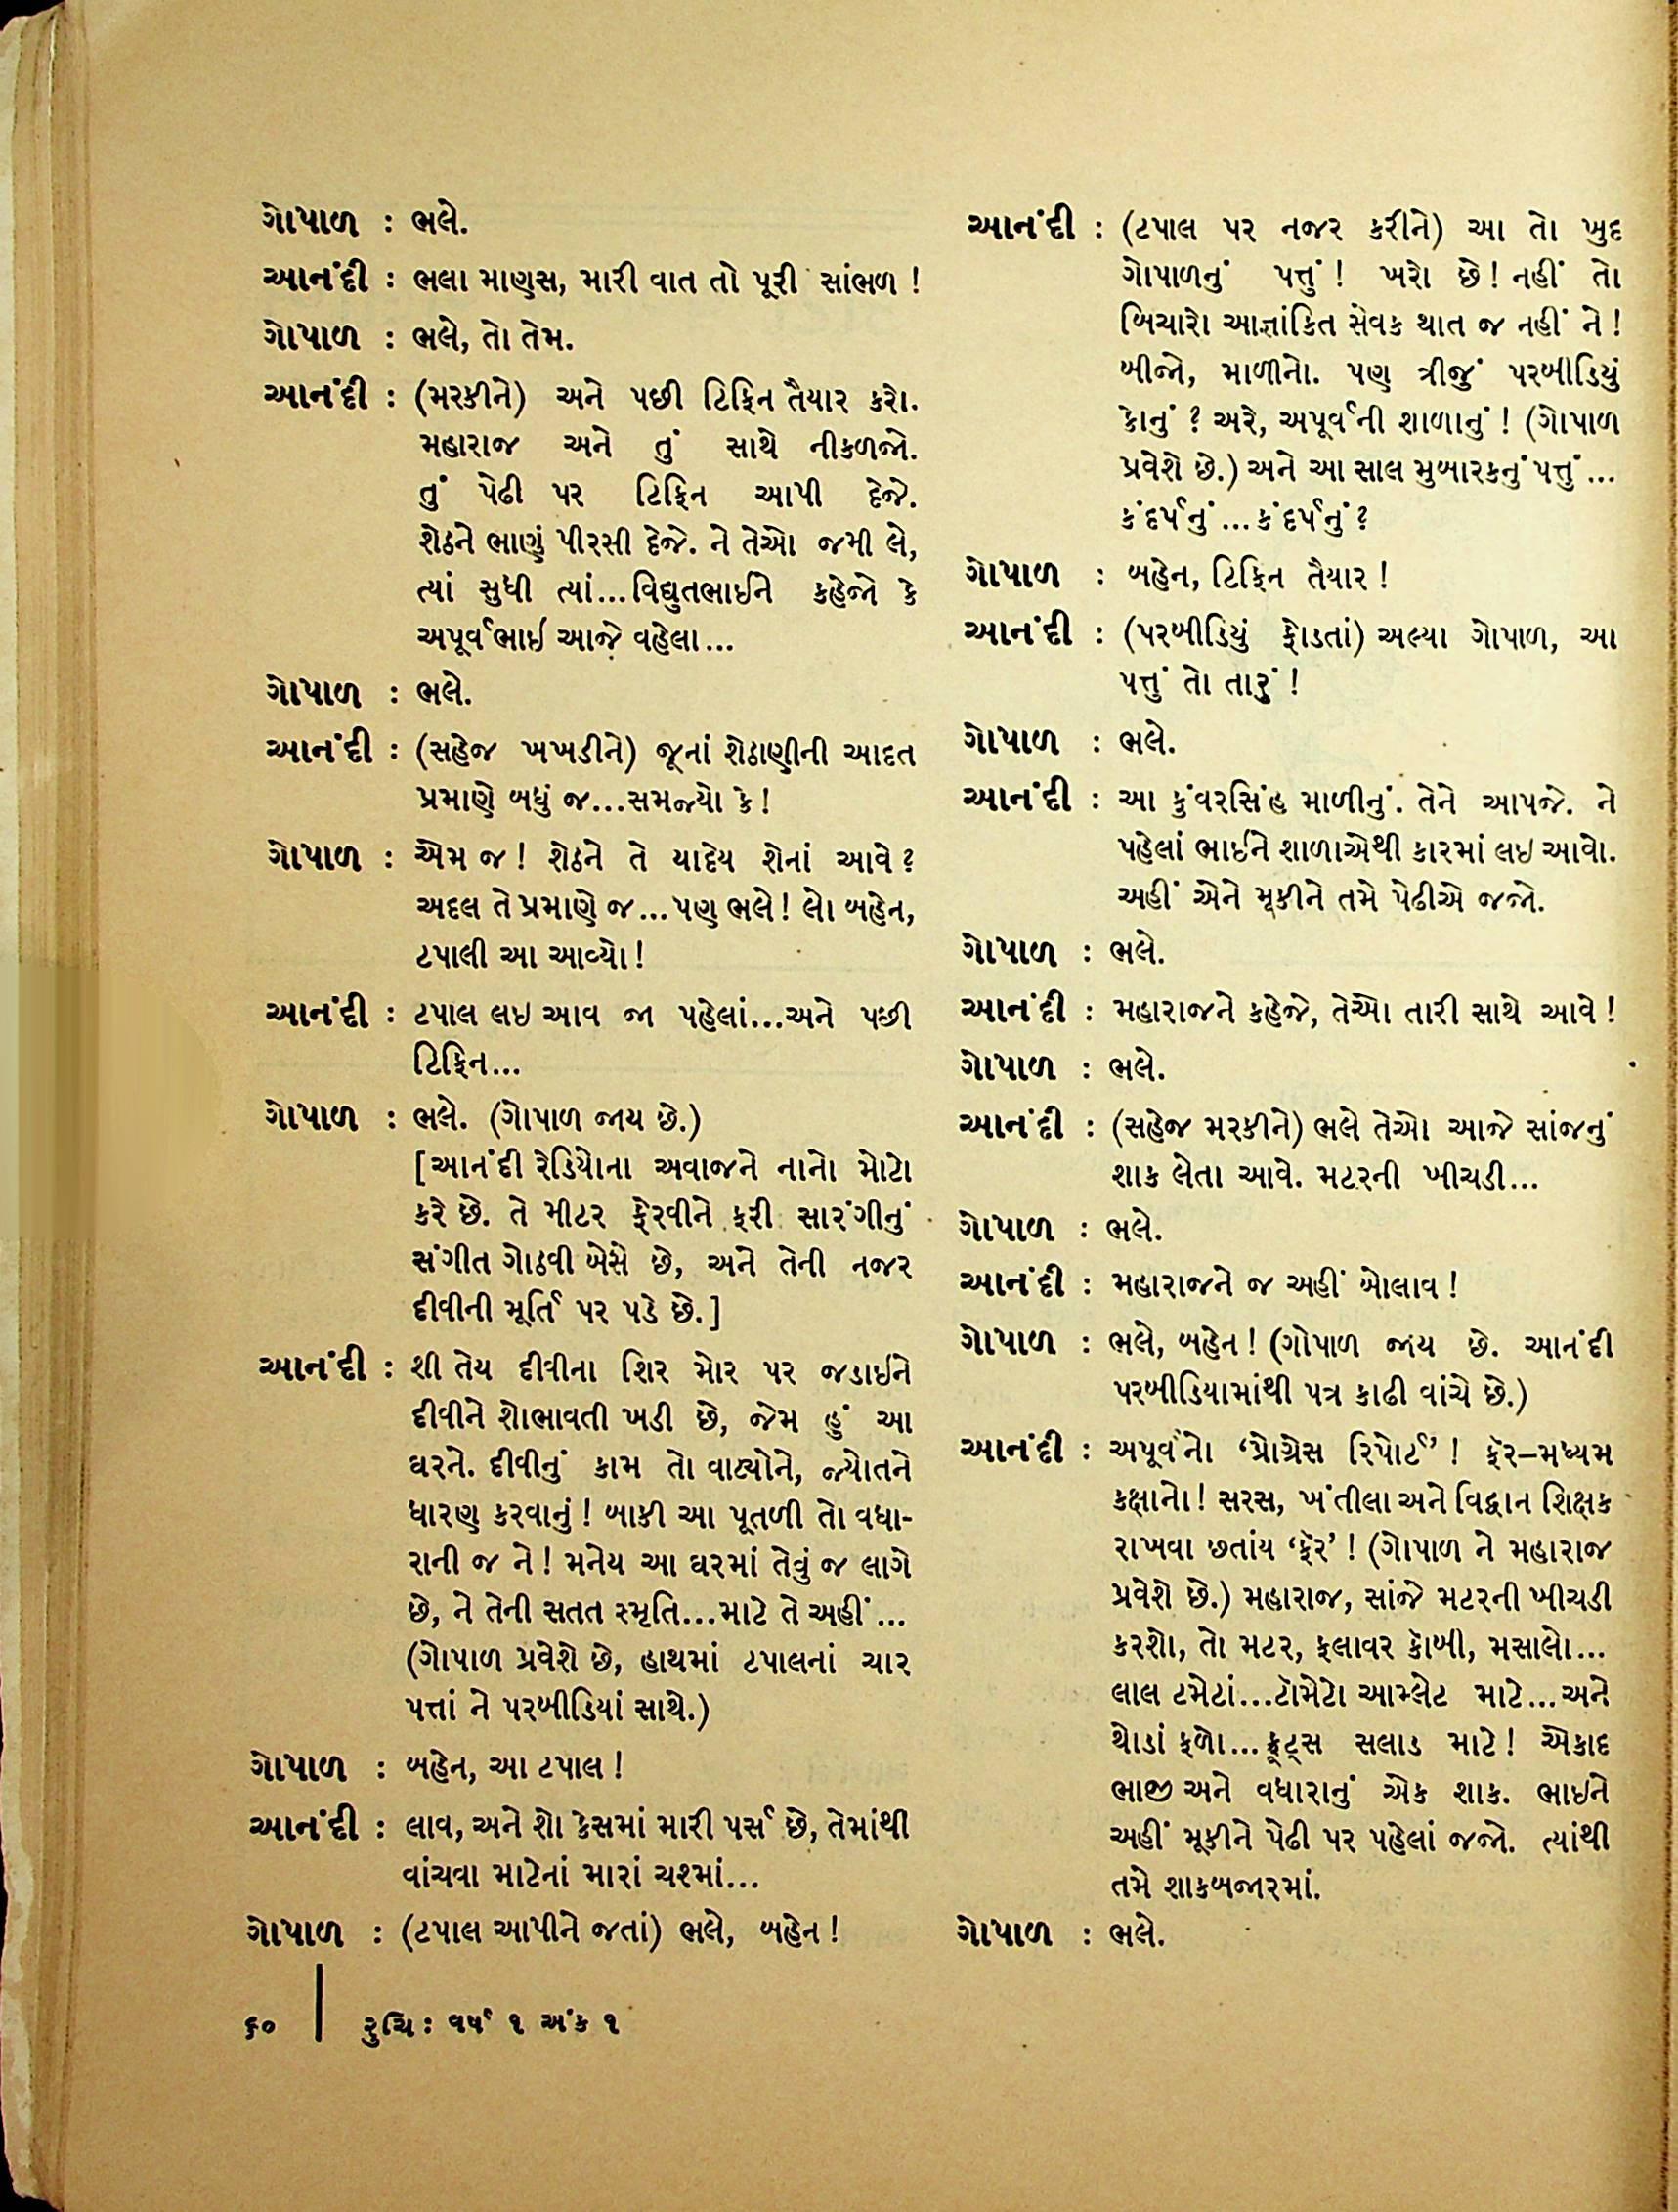 ગોપાળ : ભલે.
આનંદી : ભલા માણસ, મારી વાત તો પૂરી સાંભળ !
ગોપાળ : ભલે, તો તેમ.
આનંદી : (મરકીને) અને પછી ટિફિન તૈયાર કરો.
મહારાજ અને તું સાથે નીકળજો.
તું પેઢી પર ટિફિન આપી દેજે.
શેઠને ભાણું પીરસી દેજે. ને તેઓ જમી લે,
ત્યાં સુધી ત્યાં...વિદ્યુતભાઈને કહેજો કે
અપૂર્વભાઇ આજે વહેલા...
ગોપાળ : ભલે.
આનંદી : (સહેજ ખખડીને) જૂનાં શેઠાણીની આદત
પ્રમાણે બધું જ...સમજ્યો કે !
ગોપાળ : એમ જ ! શેઠને તે યાદેય શેનાં આવે ?
અદલ તે પ્રમાણે જ...પણ ભલે ! લો બહેન,
ટપાલી આ આવ્યો !
આનંદી : ટપાલ લઇ આવ જા પહેલાં...અને પછી
ટિફિન...
ગોપાળ : ભલે. (ગોપાળ જાય છે.)
[આનંદી રેડિયોના અવાજને નાનો મોટો
કરે છે. તે મીટર ફેરવીને ફરી સારંગીનું
સંગીત ગોઠવી બેસે છે, અને તેની નજર
દીવીની મૂર્તિ પર પડે છે.]
આનંદી : શી તેય દીવીના શિર મોર પર જડાઈને
દીવીને શોભાવતી ખડી છે, જેમ હું આ
ઘરને. દીવીનું કામ તો વાટ્યોને, જ્યોતને
ધારણ કરવાનું ! બાકી આ પૂતળી તો વધા-
રાની જ ને ! મનેય આ ઘરમાં તેવું જ લાગે
છે, ને તેની સતત સ્મૃતિ...માટે તે અહીં...
(ગોપાળ પ્રવેશે છે, હાથમાં ટપાલનાં ચાર
પત્તાં ને પરબીડિયાં સાથે.)
ગોપાળ : બહેન, આ ટપાલ !
આનંદી : લાવ, અને શો કેસમાં મારી પર્સ છે, તેમાંથી
વાંચવા માટેનાં મારાં ચશ્માં...
ગોપાળ : (ટપાલ આપીને જતાં) ભલે, બહેન !
૬૦ | રુચિ: વર્ષ ૧ અંક ૧
આનંદી : (ટપાલ પર નજર કરીને) આ તો ખુદ
ગોપાળનું પત્તું ! ખરો છે ! નહીં તો
બિચારો આજ્ઞાંકિત સેવક થાત જ નહીં ને !
બીજો, માળીનો. પણ ત્રીજું પરબીડિયું
કોનું ? અરે, અપૂર્વની શાળાનું ! (ગોપાળ
પ્રવેશે છે.) અને આ સાલ મુબારકનું પત્તું...
કંદર્પનું...કંદર્પનું ?
ગોપાળ : બહેન, ટિફિન તૈયાર !
આનંદી : (પરબીડિયું ફોડતાં) અલ્યા ગોપાળ, આ
પત્તું તો તારું !
ગોપાળ : ભલે.
આનંદી : આ કુંવરસિંહ માળીનું. તેને આપજે. ને
પહેલાં ભાઈને શાળાએથી કારમાં લઇ આવો.
અહીં એને મૂકીને તમે પેઢીએ જજો.
ગોપાળ : ભલે.
આનંદી : મહારાજને કહેજે, તેઓ તારી સાથે આવે !
ગોપાળ : ભલે.
આનંદી : (સહેજ મરકીને) ભલે તેઓ આજે સાંજનું
શાક લેતા આવે. મટરની ખીચડી...
ગોપાળ : ભલે.
આનંદી : મહારાજને જ અહીં બોલાવ !
ગોપાળ : ભલે, બહેન ! (ગોપાળ જાય છે. આનંદી
પરબીડિયામાંથી પત્ર કાઢી વાંચે છે.)
આનંદી : અપૂર્વનો ‘પ્રોગ્રેસ રિપોર્ટ’ ! ફૅર–મધ્યમ
કક્ષાનો ! સરસ, ખંતીલા અને વિદ્વાન શિક્ષક
રાખવા છતાંય ‘ફૅર’ ! (ગોપાળ ને મહારાજ
પ્રવેશે છે.) મહારાજ, સાંજે મટરની ખીચડી
કરશો, તો મટર, ફલાવર કૉબી, મસાલો...
લાલ ટમેટાં...ટૉમેટો આમ્લેટ માટે...અને
થોડાં ફળો...ફ્રૂટ્સ સલાડ માટે ! એકાદ
ભાજી અને વધારાનું એક શાક. ભાઇને
અહીં મૂકીને પેઢી પર પહેલાં જજો. ત્યાંથી
તમે શાકબજારમાં.
ગોપાળ : ભલે.